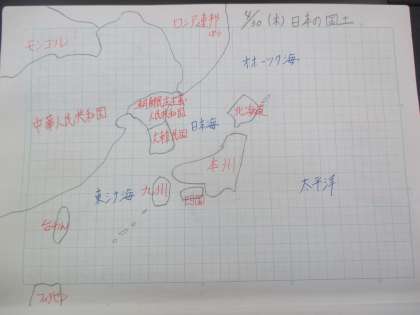 4/30(木)日本の国土
ロシア連邦
モンゴル
オホーツク海
朝鮮民主主義
人民共和国
中華人民共和国
北海道
日本海
大韓民国
本州
九州
四国
東シナ海
太平洋
台わん
フィリピン